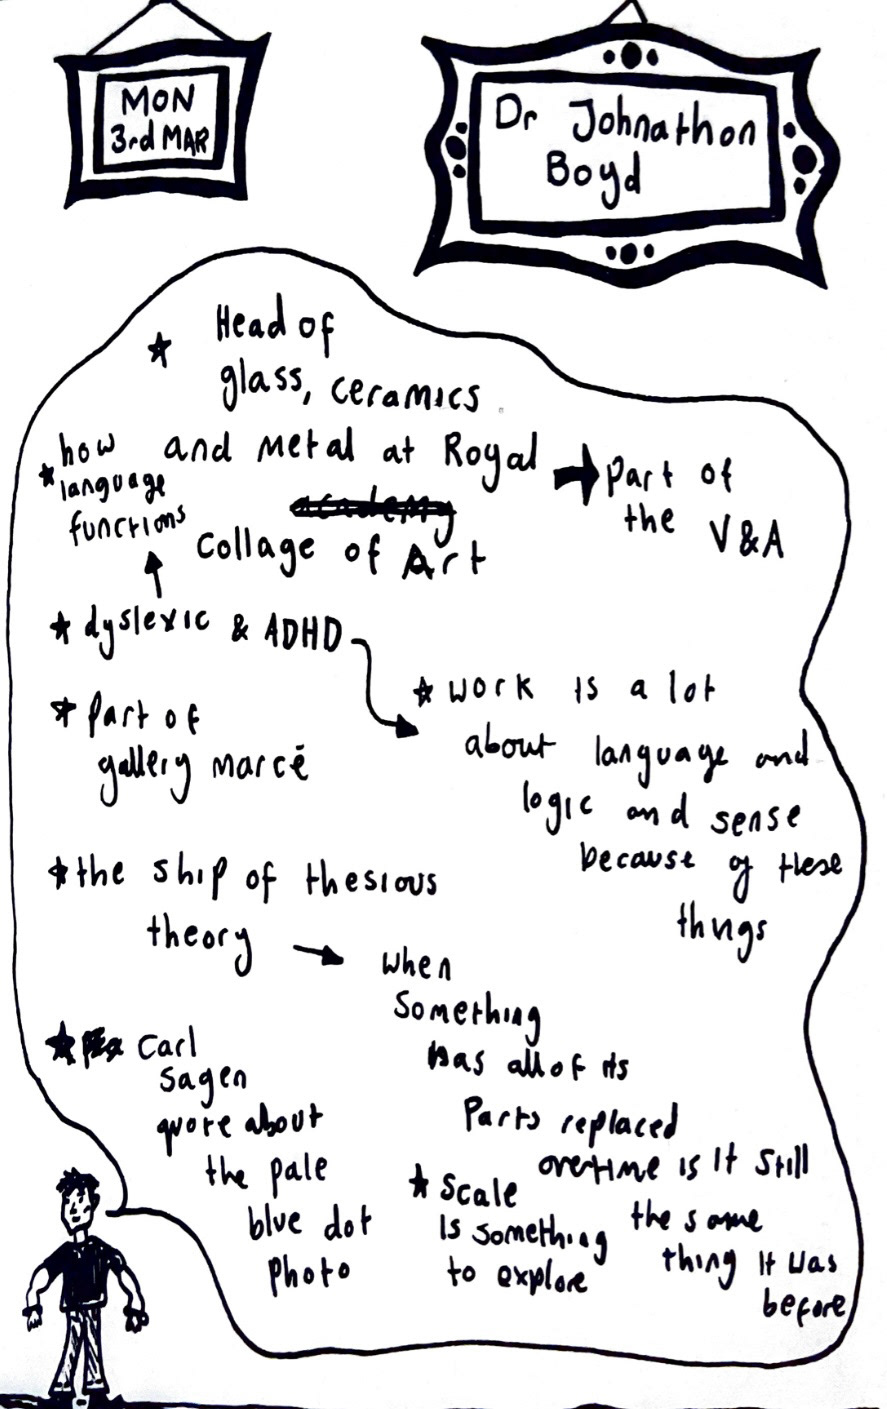 MON
3rd MAR
Dr Johnathon
Boyd
★ Head of
glass, ceramics
and metal at Royal
academy
Collage of Art
➡ Part of
the V&A
★ how
language
functions
★ dyslexic & ADHD
★ work is a lot
about language and
logic and sense
because of these
things
★ Part of
gallery marcé
★ the ship of thesious
theory
→ when
something
has all of its
Parts replaced
overtime is it still
the same
thing it was
before
★ Carl
Sagen
quote about
the pale
blue dot
photo
★ Scale
is something
to explore